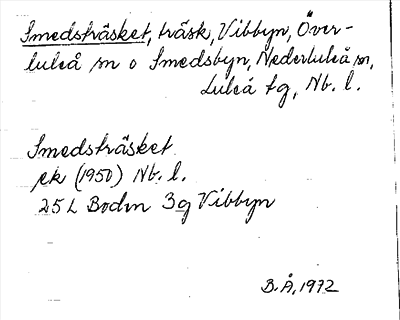 Smedsträsket, träsk, Vibbyn, Över-
luleå sn o Smedsbyn, Nederluleå sn,
Luleå tg, Nb. l.
Smedsträsket
ek (1950) Nb. l.
25 L Boden 3g Vibbyn
B.Å, 1972